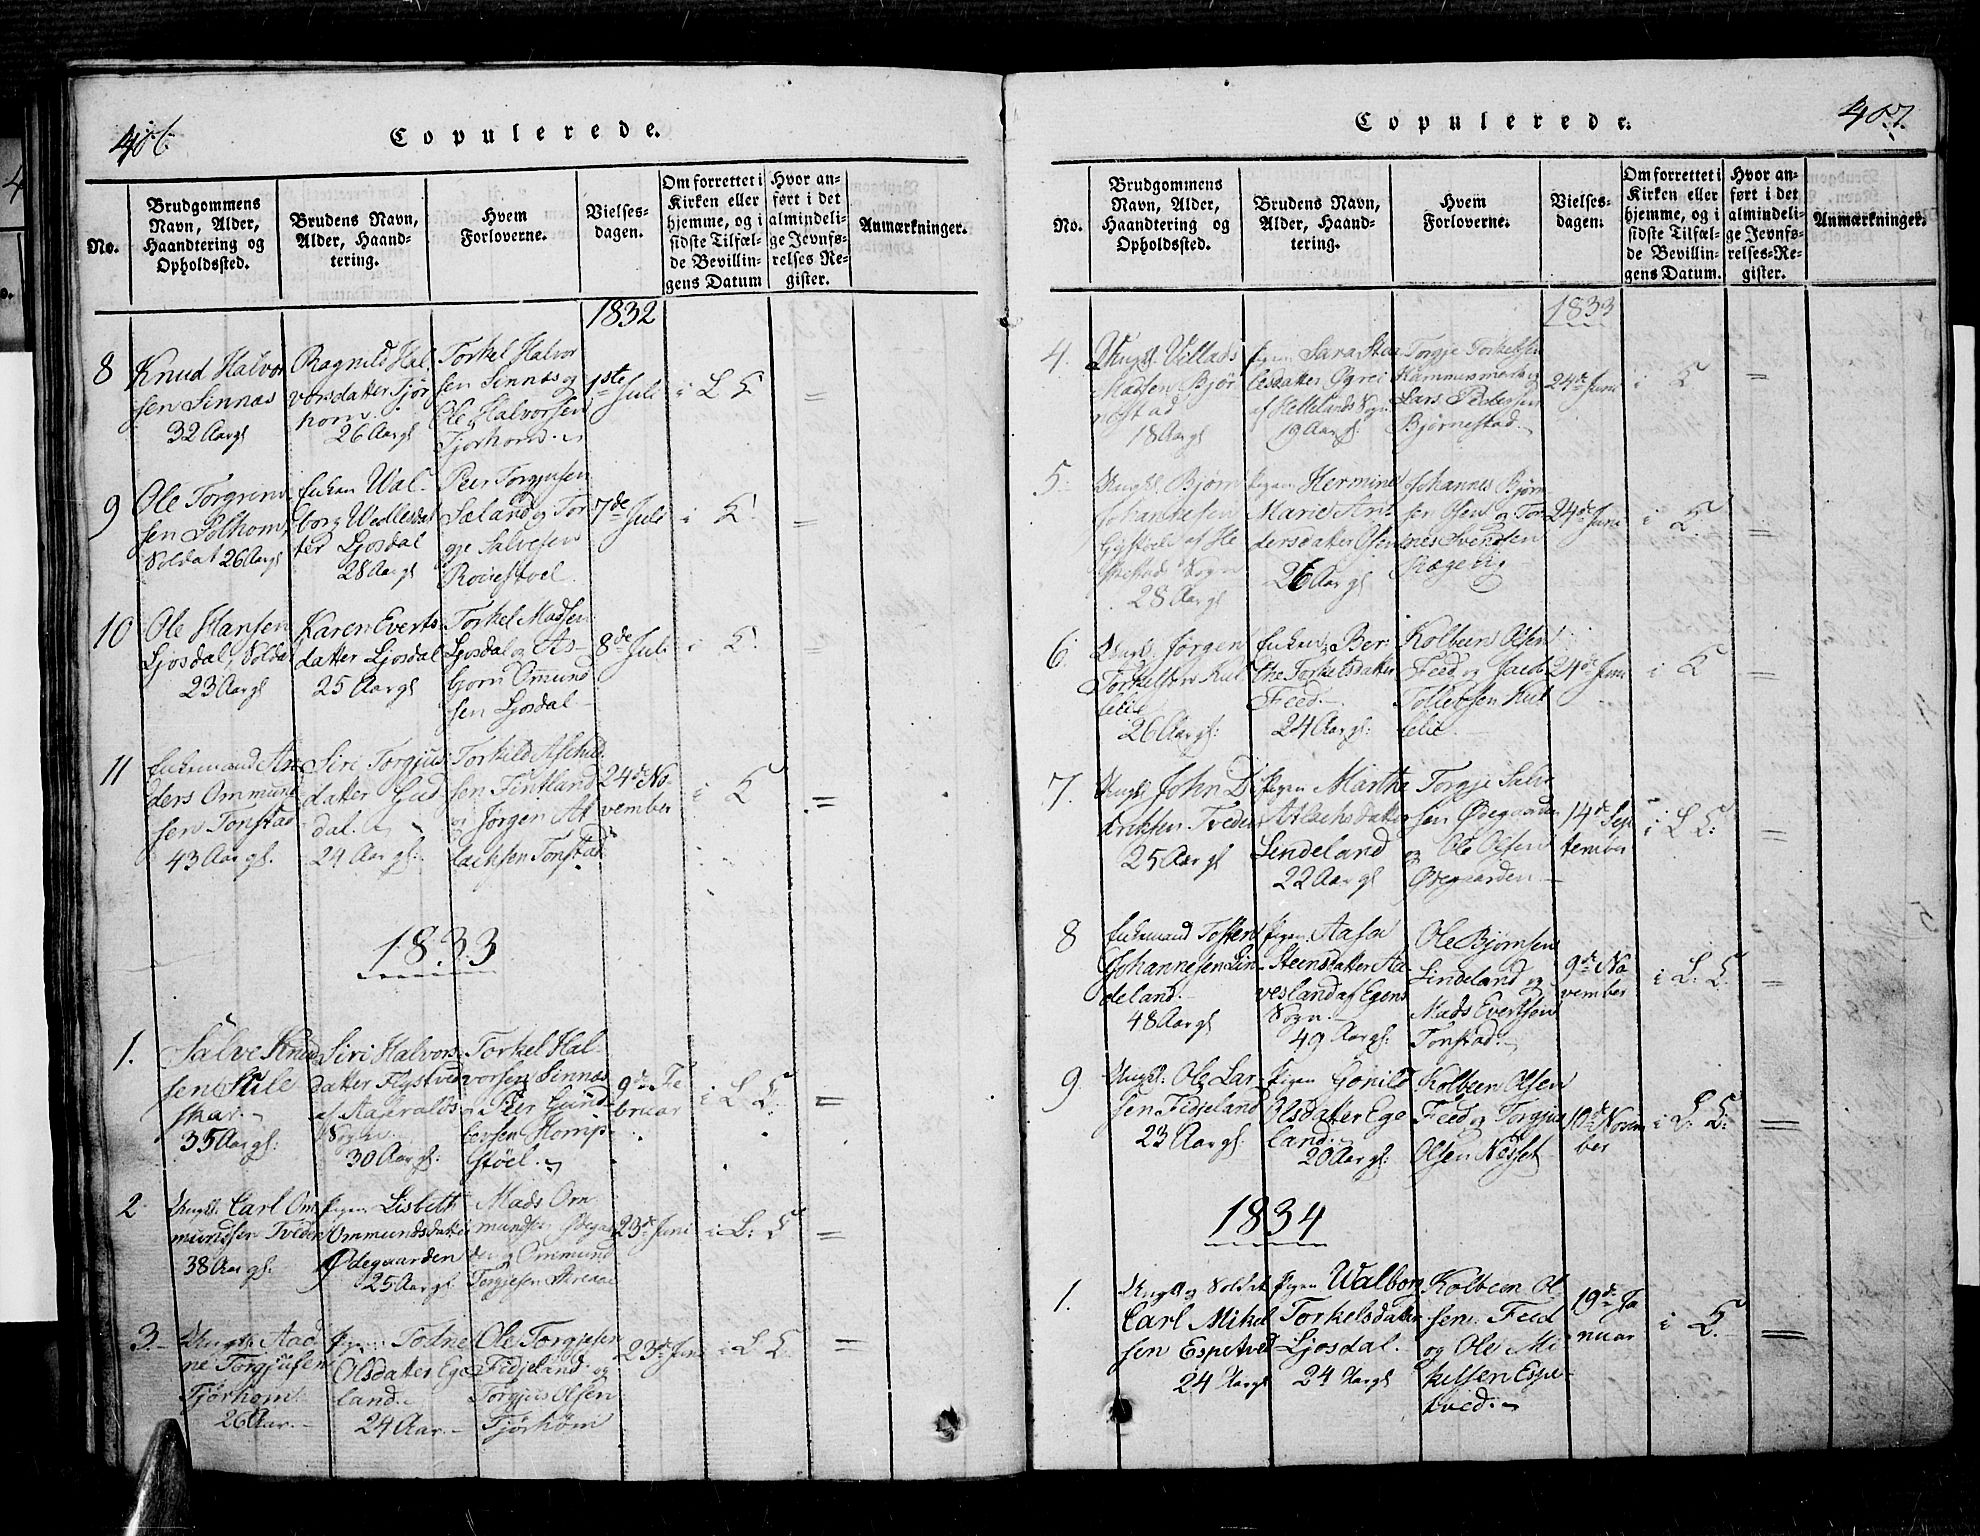 406.
Copulerede.
No.
Brudgommens
Navn, Alder,
Haandtering og
Opholdssted.
Brudens Navn,
Alder, Haand-
tering.
Hvem
Forloverne.
Vielses-
dagen.
Om forrettet i
Kirken eller
hjemme, og i
sidste Tilfæl-
de Bevillin-
gens Datum
Hvor an-
ført i det
almindeli-
ge Jevnfø-
relses Re-
gister.
Anmærkninger.
1832
8
Knud Halvor
sen Sinnæs
32 Aar gl
Ragnild Hal
vorsdatter Tjør
hom
26 Aar gl
Torkel Halvor
sen Sinnæs og
Ole Halvorsen
Tjørhom
1ste Juli
i L K
=
9
Ole Torgrims
sen Solhom
Soldat 26 Aar gl
Enken Wal-
borg Wedlesdat
ter Ljosdal
28 Aar gl
Peer Torgjusen
Sæland og Tor
gje Salvesen
7de Juli
i K
=
10
Ole Hansen
Ljosdal, Soldat
23 Aar gl
Karen Everts
datter Ljosdal
25 Aar gl
Torkel Madsen
Ljosdal og As-
bjørn Omund
sen Ljosdal
8de Juli
i K
=
11
Enkemand An
ders Ommund
sen Tonstad
43 Aar gl.
Siri Torgjus
datter Gud
dal
24 Aar gl:
Torkild Aschild
sen Fintland
og Jørgen At
lachsen Tonstad
24de No
vember
i K
=
1833
1.
Salve Knud
sen Sule
skar
35 Aar gl.
Siri Halvors
datter Flystved
af Aaseralds
Sogn
30 Aar gl:
Torkel Hal-
vorsen Sinnæs
og Peer Gund-
ersen Homp-
støel
9de Fe
bruar
i L K.
=
2
Ungk. Carl Om
mundsen Tveden
38 Aar gl.
Pigen Lisbeth
Ommundsdatter
Ødegaarden
25 Aar gl
Mads Om
mundsen Ødegaar
den og Ommund
Torgjesen
23de Juni
i L: K
=
3
Ungk. Aad
ne Torgjusen
Tjørhom
26 Aar.
Pigen Todne
Olsdatter Ege
land.
24 Aar.
Ole Torgjesen
Fidjeland og
Torgjus Olsen
Tjørhom
23de Juni
i L K
=
407.
Copulerede.
No.
Brudgommens
Navn, Alder,
Haandtering og
Opholdssted.
Brudens Navn,
Alder, Haand-
tering.
Hvem
Forloverne.
Vielses-
dagen.
Om forrettet i
Kirken eller
hjemme, og i
sidste Tilfæl-
de Bevillin-
gens Datum.
Hvor an-
ført i det
almindeli-
ge Jevnfø-
relses-Re-
gister.
Anmærkninger.
1833
4.
Ungk. Villads
Madsen Bjør
nestad
18 Aar gl
Pigen Sara
af Hellelands Sogn
19 Aar gl:
Torgje Torkelsen
Hammersmark og
Lars Pedersen
Bjørnestad
24de Juni
i K
=
5.
Ungk. Bjørn
Johannesen
28 Aar gl
Pigen Hermine
Marie An
dersdatter Osen
26 Aar gl
Johannes Bjørn
sen Osen og Tor
nes Svendsen
Rægelig
24de Juni
i K.
=
6.
Ungk. Jørgen
Torkelsen
26 Aar gl:
Enken Ber
the Torkelsdatter
Feed
24 Aar gl:
Kolbeen Olsen
Feed og
Tollevsen
24de Juni
i K
=
7.
Ungk John D
driksen Tveden
25 Aar gl
Pigen Martha
Atlachsdatter
Lindeland
22 Aar gl
Torgje Salve
sen Ødegaarden
og Ole Olsen
Ødegaarden
14de Sep
tember
i L K:
=
8
Enkemand Tosten
Johannesen Lin
deland.
48 Aar gl
Pigen Aasa
Steensdatter Aa-
vesland af Egens
Sogn.
49 Aar gl:
Ole Bjørnsen
Lindeland og
Mads Evertsen
Tonstad.
9de No
vember
i L. K.
=
9
Ungk. Ole Lar
sen Fidjeland
23 Aar gl:
Pigen Gonild
Olsdatter Ege
land.
20 Aar gl:
Kolbeen Olsen
Feed og Torgjus
Olsen Nesset
10de Novem
ber
i L K:
=
1834
1.
Ungk og Soldat
Carl Mikel
sen Espetved
24 Aar gl
Pigen Walborg
Torkelsdatter
Ljosdal.
24 Aar gl
Kolbeen Ol
sen Feed
og Ole Mi
kelsen Espe-
tved.
19de Ja
nuar
i K.
=